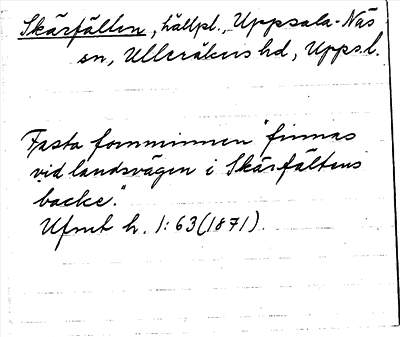 Skärfälten, hållpl., Uppsala-Näs
sn, Ulleråkers hd, Upps.l.
Fasta fornminnen "finnas
vid landsvägen i Skärfältens
backe."
Ufmt h. 1:63 (1871).